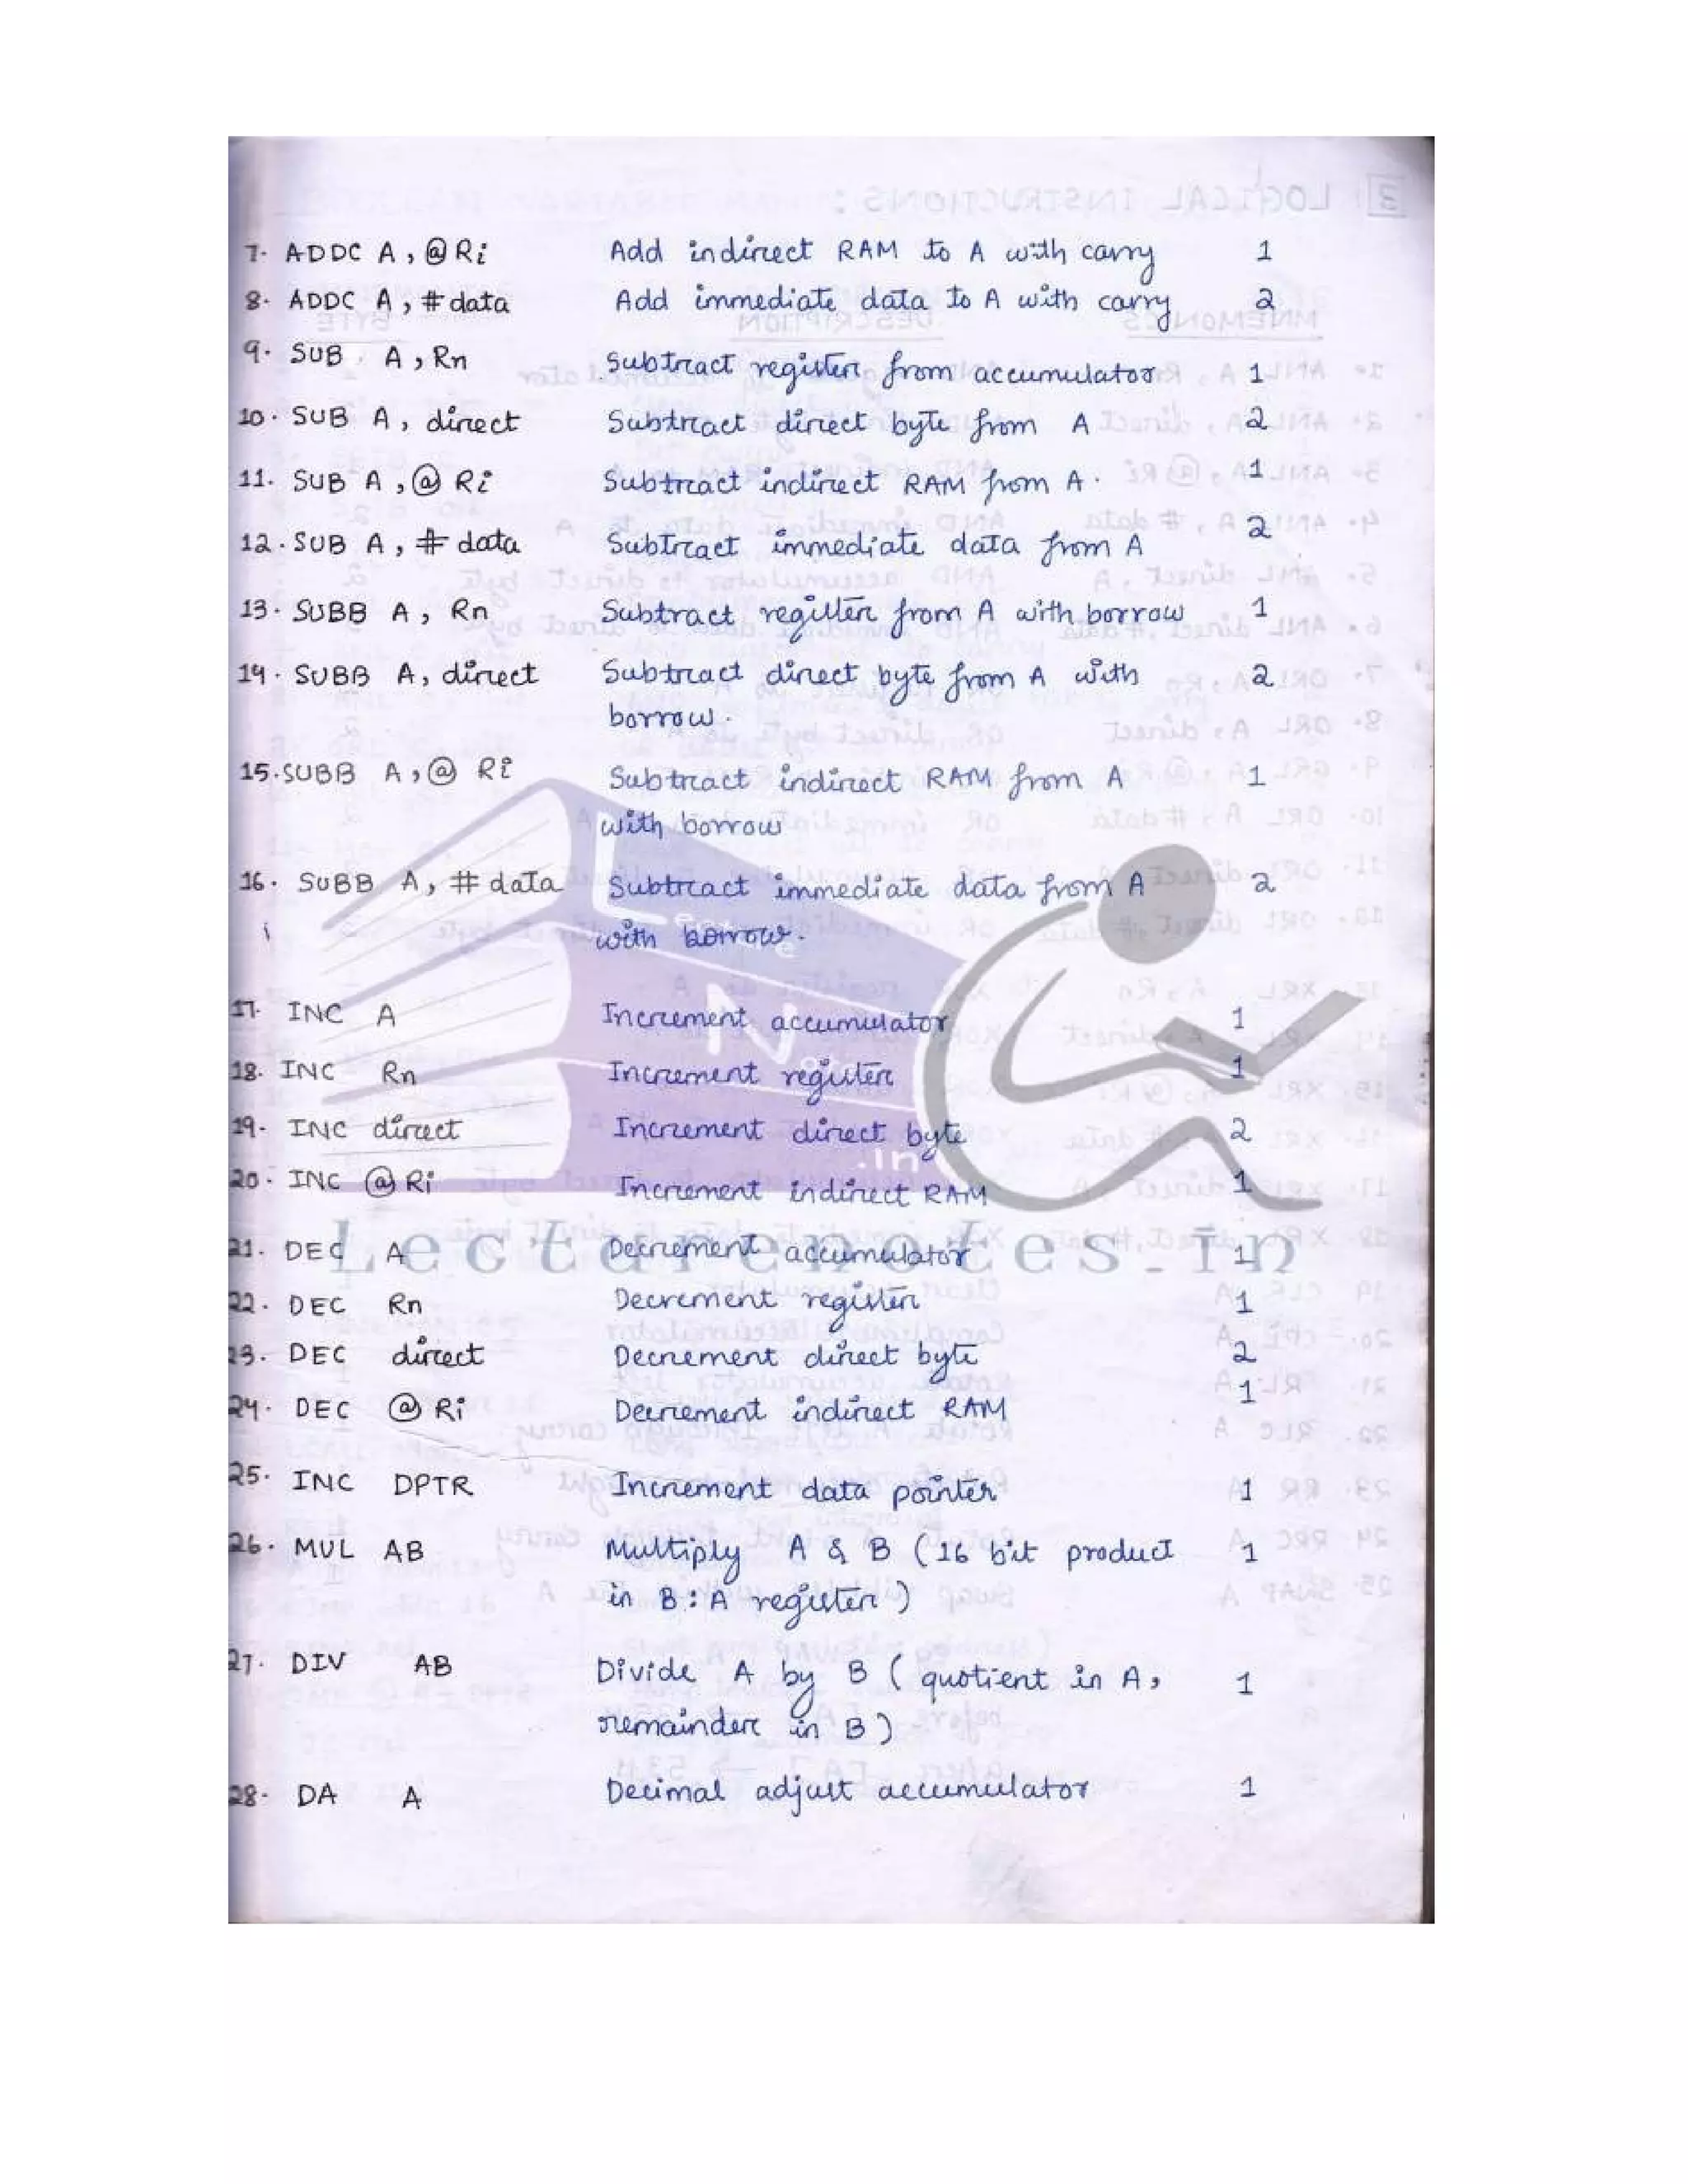 7. ADDC A, @Ri Add indirect RAM to A with carry 1
8. ADDC A, #data Add immediate data to A with carry 2
9. SUB A, Rn Subtract register from accumulator 1
10. SUB A, direct Subtract direct byte from A 2
11. SUB A, @Ri Subtract indirect RAM from A. 1
12. SUB A, #data Subtract immediate data from A 2
13. SUBB A, Rn Subtract register from A with borrow 1
14. SUBB A, direct Subtract direct byte from A with 2
borrow.
15. SUBB A, @Ri Subtract indirect RAM from A 1
with borrow
16. SUBB A, #data Subtract immediate data from A 2
with borrow.
17. INC A Increment accumulator 1
18. INC Rn Increment register 1
19. INC direct Increment direct byte 2
20. INC @Ri Increment indirect RAM 1
21. DEC A Decrement accumulator 1
Lecturenotes.in
22. DEC Rn Decrement register 1
23. DEC direct Decrement direct byte 2
24. DEC @Ri Decrement indirect RAM 1
25. INC DPTR Increment data pointer 1
26. MUL AB Multiply A & B (16 bit product 1
in B:A register)
27. DIV AB Divide A by B (quotient in A, 1
remainder in B)
28. DA A Decimal adjust accumulator 1